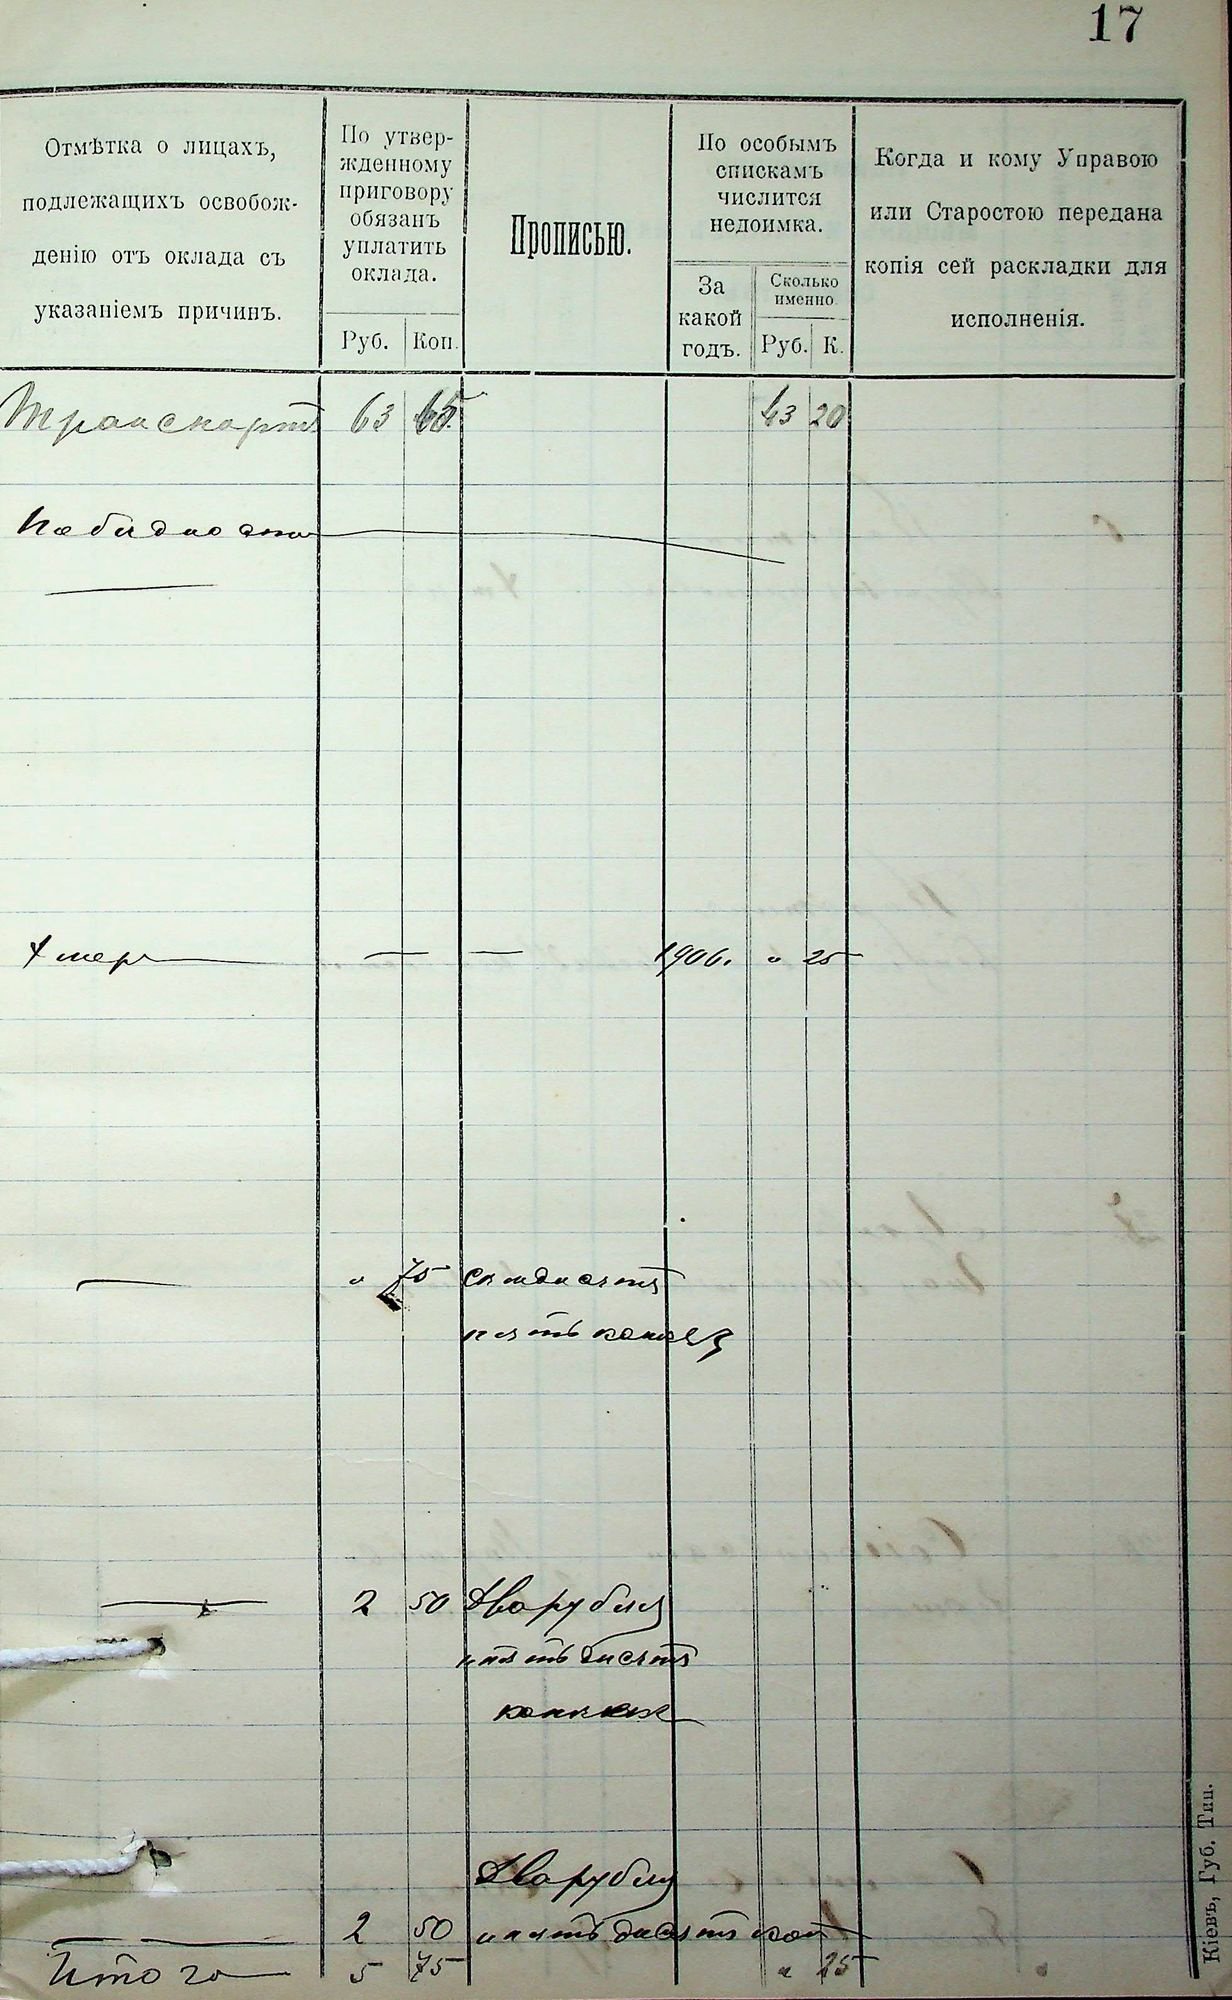 17
Отмѣтка о лицахъ,
подлежащихъ освобож-
денію отъ оклада съ
указаніемъ причинъ.
По утвер-
жденному
приговору
обязанъ
уплатить
оклада.
Руб. Коп.
Прописью.
По особымъ
спискамъ
числится
недоимка.
За
какой
годъ.
Сколько
именно
Руб. К.
Когда и кому Управою
или Старостою передана
копія сей раскладки для
исполненія.
Транспортъ 63 65 43 20
По бидности
Умеръ — — 1906. „ 25
— „ 75 семдисятъ
пять копѣекъ
— 2 50 Два рубля
пятьдисятъ
копѣекъ
Два рубля
— 2 50 пятьдисятъ коп
Итого 5 75 „ 25
Кіевъ, Губ. Тип.